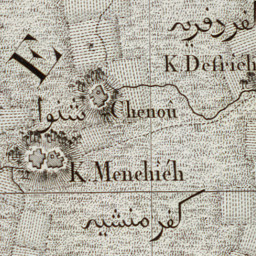 كفر دفريه
K. Defrich
E
شنوا
Chenoü
K. Menchiéh
كفر منشيه